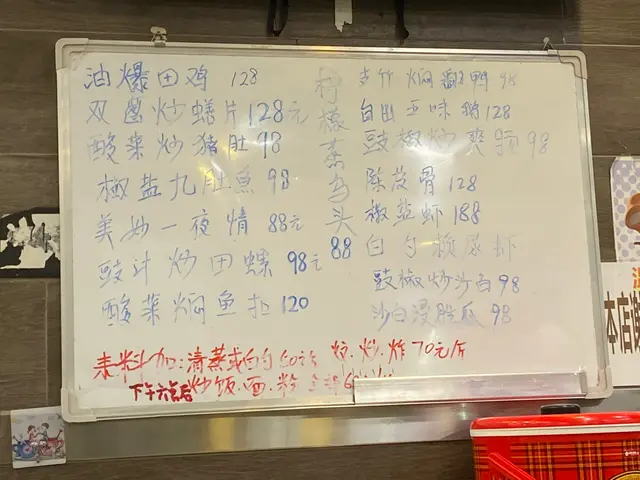 油爆田鸡 128
双菌炒鳝片128元
酸菜炒猪肚98
椒盐九肚魚98
美妙一夜情 88元
豉汁炒田螺 98元
酸菜焖鱼扣 120
柠檬蒸乌头 88
支竹焖 鸭 98
自出五味鹅128
豉椒炒爽 98
陈皮骨 128
椒盐虾 188
白勺 尿虾
豉椒炒沙白98
沙白浸胜瓜 98
耒料加:清蒸或白勺60元 炆.炒.炸70元斤
下午六点后炒饭.面.粉
本店